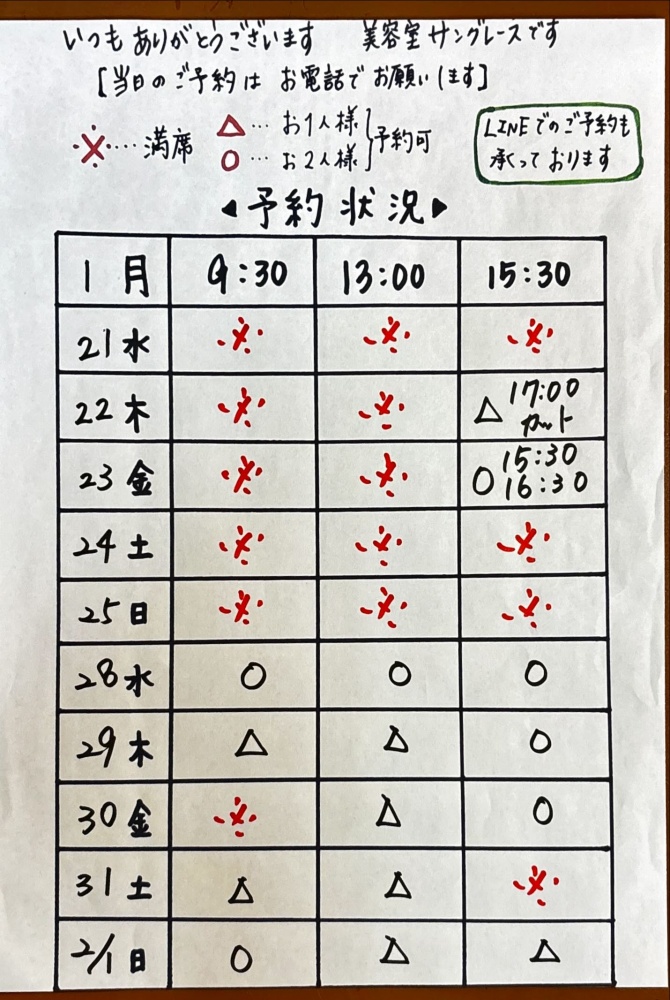 いつもありがとうございます 美容室サングレースです
[当日のご予約は お電話でお願いします]
※…満席 △…お1人様 ○…お2人様 予約可
LINEでのご予約も
承っております
◀予約状況▶
1月 9:30 13:00 15:30
21水 ※ ※ ※
22木 ※ ※ △17:00カット
23金 ※ ※ ○15:30 16:30
24土 ※ ※ ※
25日 ※ ※ ※
28水 ○ ○ ○
29木 △ △ ○
30金 ※ △ ○
31土 △ △ ※
2/1日 ○ △ △